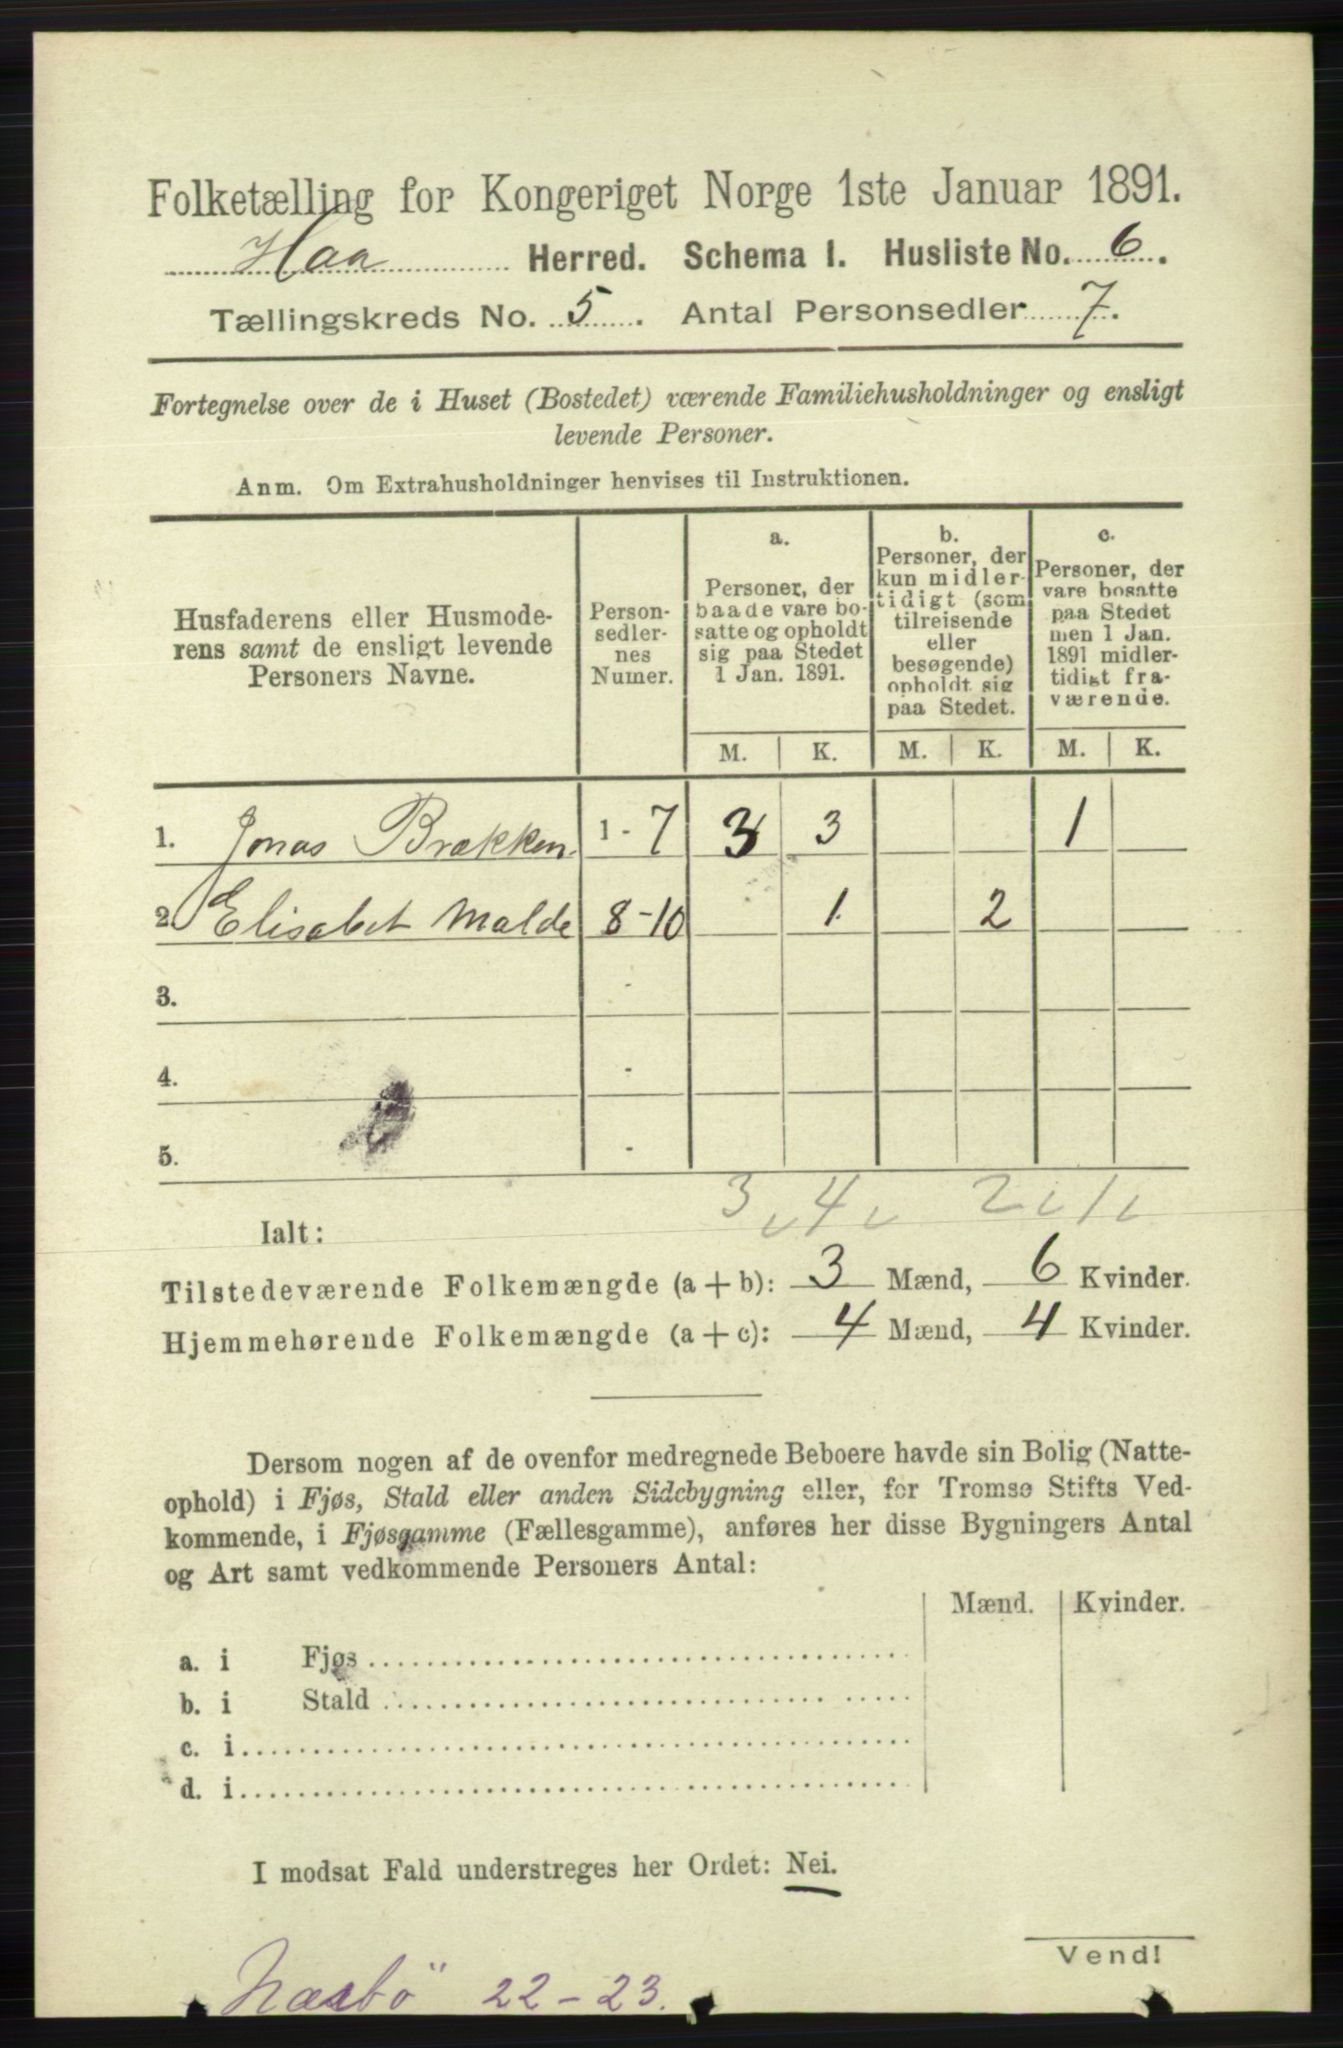 Folketælling for Kongeriget Norge 1ste Januar 1891.
Haa Herred. Schema I. Husliste No. 6.
Tællingskreds No. 5. Antal Personsedler 7.
Fortegnelse over de i Huset (Bostedet) værende Familiehusholdninger og ensligt
levende Personer.
Anm. Om Extrahusholdninger henvises til Instruktionen.
Husfaderens eller Husmode-
rens samt de ensligt levende
Personers Navne.
Person-
sedler-
nes
Numer.
a.
Personer, der
baade vare bo-
satte og opholdt
sig paa Stedet
1 Jan. 1891.
b.
Personer, der
kun midler-
tidigt (som
tilreisende
eller
besøgende)
opholdt sig
paa Stedet.
c.
Personer, der
vare bosatte
paa Stedet
men 1 Jan.
1891 midler-
tidigt fra-
værende.
M. K. M. K. M. K.
1. Jonas Brækken 1 - 7 3 3 1
2. Elisabet Malde 8 - 10 1. 2
3. -
4. -
5. -
3 4 2 1
Ialt:
Tilstedeværende Folkemængde (a + b): 3 Mænd, 6 Kvinder.
Hjemmehørende Folkemængde (a + c): 4 Mænd, 4 Kvinder.
Dersom nogen af de ovenfor medregnede Beboere havde sin Bolig (Natte-
ophold) i Fjøs, Stald eller anden Sidebygning eller, for Tromsø Stifts Ved-
kommende, i Fjøsgamme (Fællesgamme), anføres her disse Bygningers Antal
og Art samt vedkommende Personers Antal:
Mænd. Kvinder.
a. i Fjøs
b. i Stald
c. i
d. i
I modsat Fald understreges her Ordet: Nei.
Vend!
Næsbö 22-23.